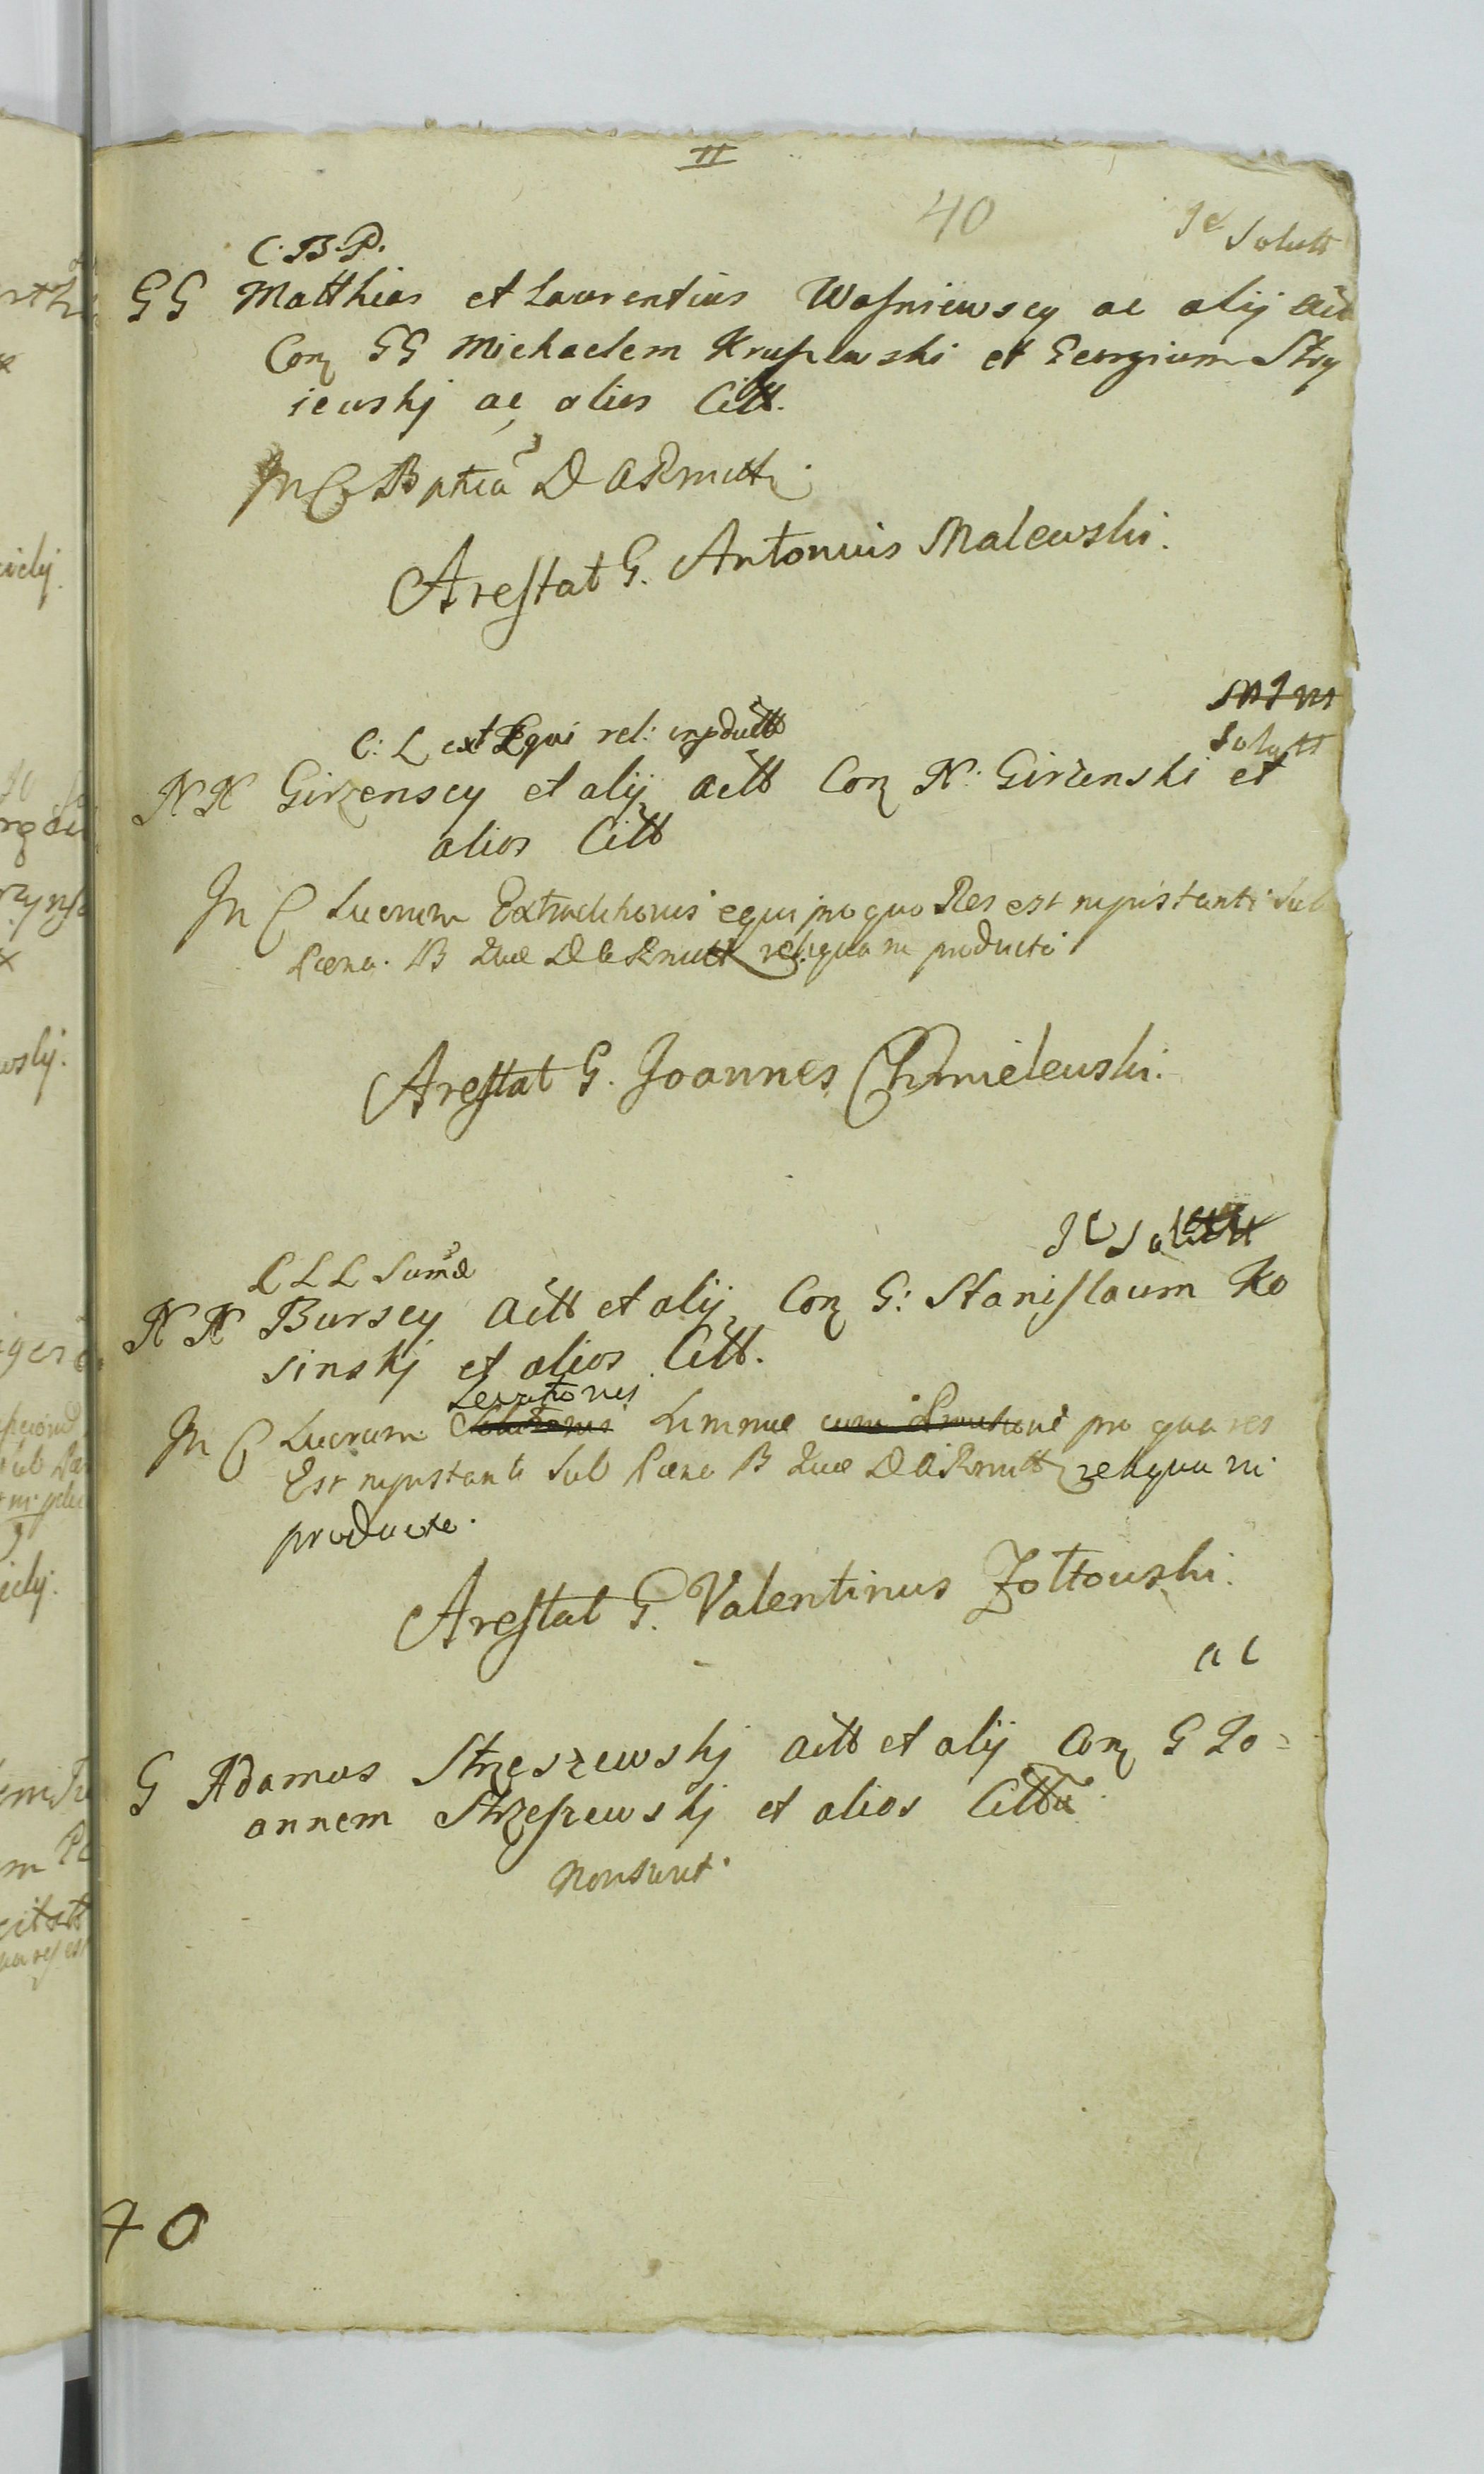 II
40
Je Solutt
C. B. P.
GG Matthias et Laurentius Wasniewscy ac alij Act
Con GG Michaelem Kruszewski et Georgium Stry
iewskj ac alios Citt.
In C B ptia D A Rmitt
Arestat G. Antonius Malewski.
Solutt
C: L ext Equi rel: inproductt
NN Girzenscy et alij Actt Con N: Girzenski et
alios Citt
In C Lucrum Extraditionis equi pro quo Res est nijnstanti Sub
Pæna B Quæ D A Rmitt reliqua ni producti
Arestat G. Joannes Chmielewski.
JC
C L L Sumæ
NN Burscy Actt et alij Con G: Stanislaum Ko
sinskj et alios Citt.
Levationis
In C Lucrum Summæ pro qua res
Est nijnstanti Sub Pæna B Quæ D A Rmitt reliqua ni
producte.
Arestat G. Valentinus Zołtowski.
a c
G Adamus Strzeszewskj Actt et alij Con G Jo=
annem Strzeszewskj et alios Citt
Non sunt.
40